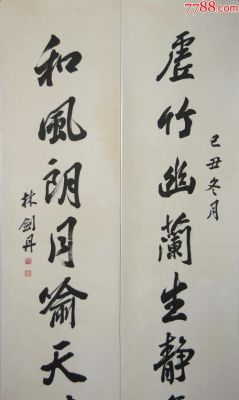 7788.com
己丑冬月
虚竹幽兰生静
和風朗月喻天
林剑丹